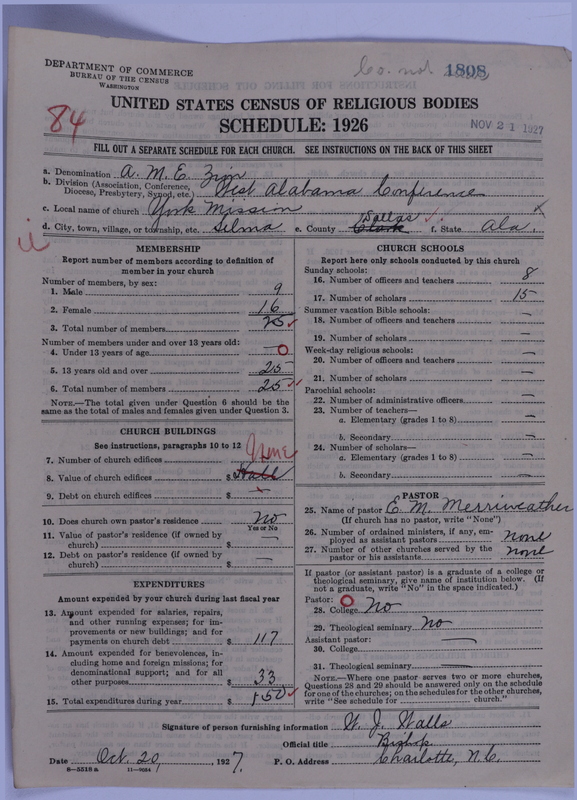 DEPARTMENT OF COMMERCE
BUREAU OF THE CENSUS
WASHINGTON
Co. not 1808
84
UNITED STATES CENSUS OF RELIGIOUS BODIES
SCHEDULE: 1926
NOV 21 1927
FILL OUT A SEPARATE SCHEDULE FOR EACH CHURCH. SEE INSTRUCTIONS ON THE BACK OF THIS SHEET
a. Denomination A. M. E. Zion
b. Division (Association, Conference, Diocese, Presbytery, Synod, etc.) West Alabama Conference
c. Local name of church York Mission
d. City, town, village, or township, etc. Selma e. County Clark Dallas f. State Ala.
MEMBERSHIP
Report number of members according to definition of
member in your church
Number of members, by sex:
1. Male 9
2. Female 16
3. Total number of members 25
Number of members under and over 13 years old:
4. Under 13 years of age 0
5. 13 years old and over 25
6. Total number of members 25
NOTE.—The total given under Question 6 should be
same as the total of males and females given under Question 3.
CHURCH BUILDINGS
See instructions, paragraphs 10 to 12
7. Number of church edifices None
8. Value of church edifices $ Hall
9. Debt on church edifices $
10. Does church own pastor's residence No
Yes or No
11. Value of pastor's residence (if owned by
church) $ —
12. Debt on pastor's residence (if owned by
church) $ —
EXPENDITURES
Amount expended by your church during last fiscal year
13. Amount expended for salaries, repairs,
and other running expenses; for im-
provements or new buildings; and for
payments on church debt $ 117
14. Amount expended for benevolences, in-
cluding home and foreign missions; for
denominational support; and for all
other purposes $ 33
15. Total expenditures during year $ 150
CHURCH SCHOOLS
Report here only schools conducted by this church
Sunday schools:
16. Number of officers and teachers 8
17. Number of scholars 15
Summer vacation Bible schools:
18. Number of officers and teachers —
19. Number of scholars —
Week-day religious schools:
20. Number of officers and teachers —
21. Number of scholars —
Parochial schools:
22. Number of administrative officers —
23. Number of teachers—
a. Elementary (grades 1 to 8) —
b. Secondary —
24. Number of scholars—
a. Elementary (grades 1 to 8) —
b. Secondary —
PASTOR
25. Name of pastor E. M. Merriweather
(If church has no pastor, write "None")
26. Number of ordained ministers, if any, em-
ployed as assistant pastors none
27. Number of other churches served by the
pastor or his assistants none
If pastor (or assistant pastor) is a graduate of a college or
theological seminary, give name of institution below. (If
not a graduate, write "No" in the space indicated.)
Pastor:
28. College No
29. Theological seminary No
Assistant pastor:
30. College —
31. Theological seminary —
NOTE.—Where one pastor serves two or more churches,
Questions 28 and 29 should be answered only on the schedule
for one of the churches; on the schedules for the other churches,
write "See schedule for church."
Signature of person furnishing information W. J. Walls
Official title Bishop
Date Oct. 20, 1927. P. O. Address Charlotte, N. C.
8—5518 a 11—9034